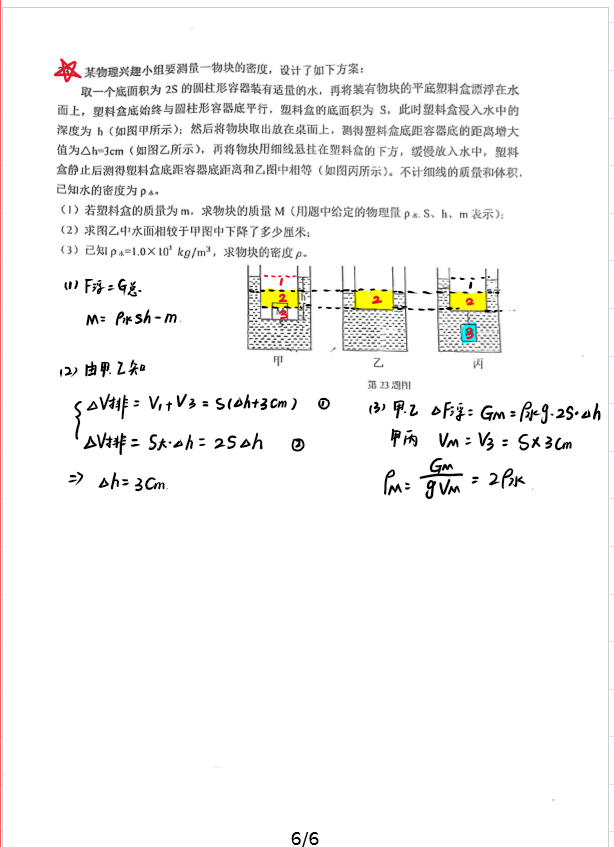 某物理兴趣小组要测量一物块的密度，设计了如下方案：
取一个底面积为 2S 的圆柱形容器装有适量的水，再将装有物块的平底塑料盒漂浮在水
面上，塑料盒底始终与圆柱形容器底平行，塑料盒的底面积为 S，此时塑料盒浸入水中的
深度为 h（如图甲所示）；然后将物块取出放在桌面上，测得塑料盒底距容器底的距离增大
值为△h=3cm（如图乙所示），再将物块用细线悬挂在塑料盒的下方，缓慢放入水中，塑料
盒静止后测得塑料盒底距容器底距离和乙图中相等（如图丙所示）。不计细线的质量和体积，
已知水的密度为ρ水。
（1）若塑料盒的质量为 m，求物块的质量 M（用题中给定的物理量ρ水、S、h、m 表示）；
（2）求图乙中水面相较于甲图中下降了多少厘米；
（3）已知ρ水=1.0×10³ kg/m³，求物块的密度ρ。
1
2
3
2
1
2
3
甲
乙
丙
第 23 题图
(1) F浮=G总.
M= ρ水sh-m.
(2) 由甲.乙知
△V排= V₁+V3 = S(△h+3cm) ①
△V排= S大·△h = 2S△h ②
=> △h=3cm.
(3) 甲.乙 △F浮= GM=ρ水g·2S·△h
甲丙 VM = V3 = S×3cm
ρM= GM/gVM = 2ρ水.
6/6